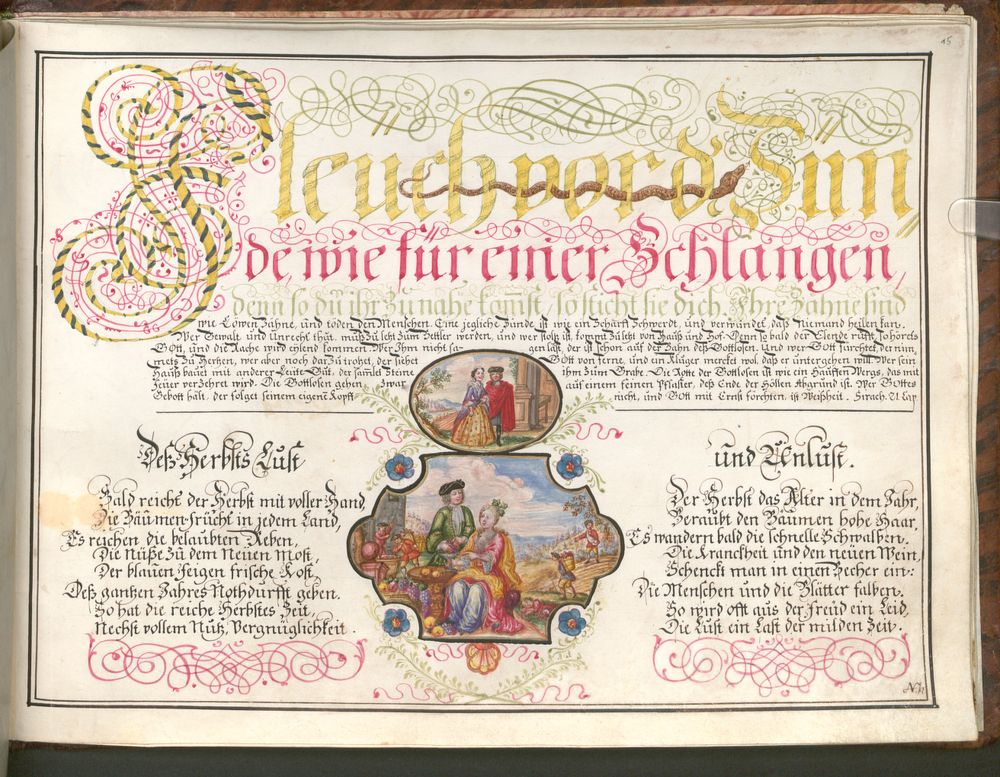 45
Fleuch vor d' Sün„
de wie für einer Schlangen,
denn so dü ihr zü nahe komst, so sticht sie dich. Ihre Zähne sind
wie Löwen Zähne, und töden den Menschen. Eine jegliche Sünde ist wie ein Scharff Schwerdt, und verwündet, daß Niemand heilen kan.
Wer Gewalt und Unrecht thüt, müß zü lezt züm Bettler werden, und wer stoltz ist, kommt zü lezt von Hauß und Hof. Denn so bald der Elende rüfft, so hörets
Gott, und die Rache wird eilend kommen. Wer Ihm nicht sagen läst, der ist schon auf der Bahn deß Gottlosen. Und wer Gott fürchtet, der nim„
mets zü Hertzen, wer aber noch darzü trotzet, der siehet Gott von ferne, und ein Klüger mercket wol, daß er untergehen will. Wer sein
Hauß bauet mit anderer Leüte Güt, der samlet Steine ihm züm Grabe. Die Rotte der Gottlosen ist wie ein Hauffen Wergs, das mit
Feüer verzehret wird. Die Gottlosen gehen zwar auf einem feinen Pflaster, deß Ende der Höllen Abgründ ist. Wer Gottes
Gebott hält, der folget seinem eigenē Kopff nicht, und Gott mit Ernst förchten, ist Weißheit. Sirach. 21 Cap.
Deß Herbsts Lüst
Bald reicht der Herbst mit voller Hand,
Die Baümen-frücht in jedem Land,
Es reichen die belaubten Reben,
Die Nüße zü dem Neuen Most,
Der blauen Feigen frische Kost,
Deß gantzen Jahres Nothdürfft geben.
So hat die reiche Herbstes Zeit,
Nechst vollem Nütz, Vergnüglichkeit.
und Unlüst.
Der Herbst das Alter in dem Jahr,
Beraubt den Baümen hohe Haar,
Es wandern bald die schnelle Schwalben.
Die Kranckheit und den neüen Wein,
Schenckt man in einen Becher ein:
Die Menschen und die Blätter falben.
So wird offt aüs der freüd ein Leid,
Die Lüst ein Last der milden Zeit.